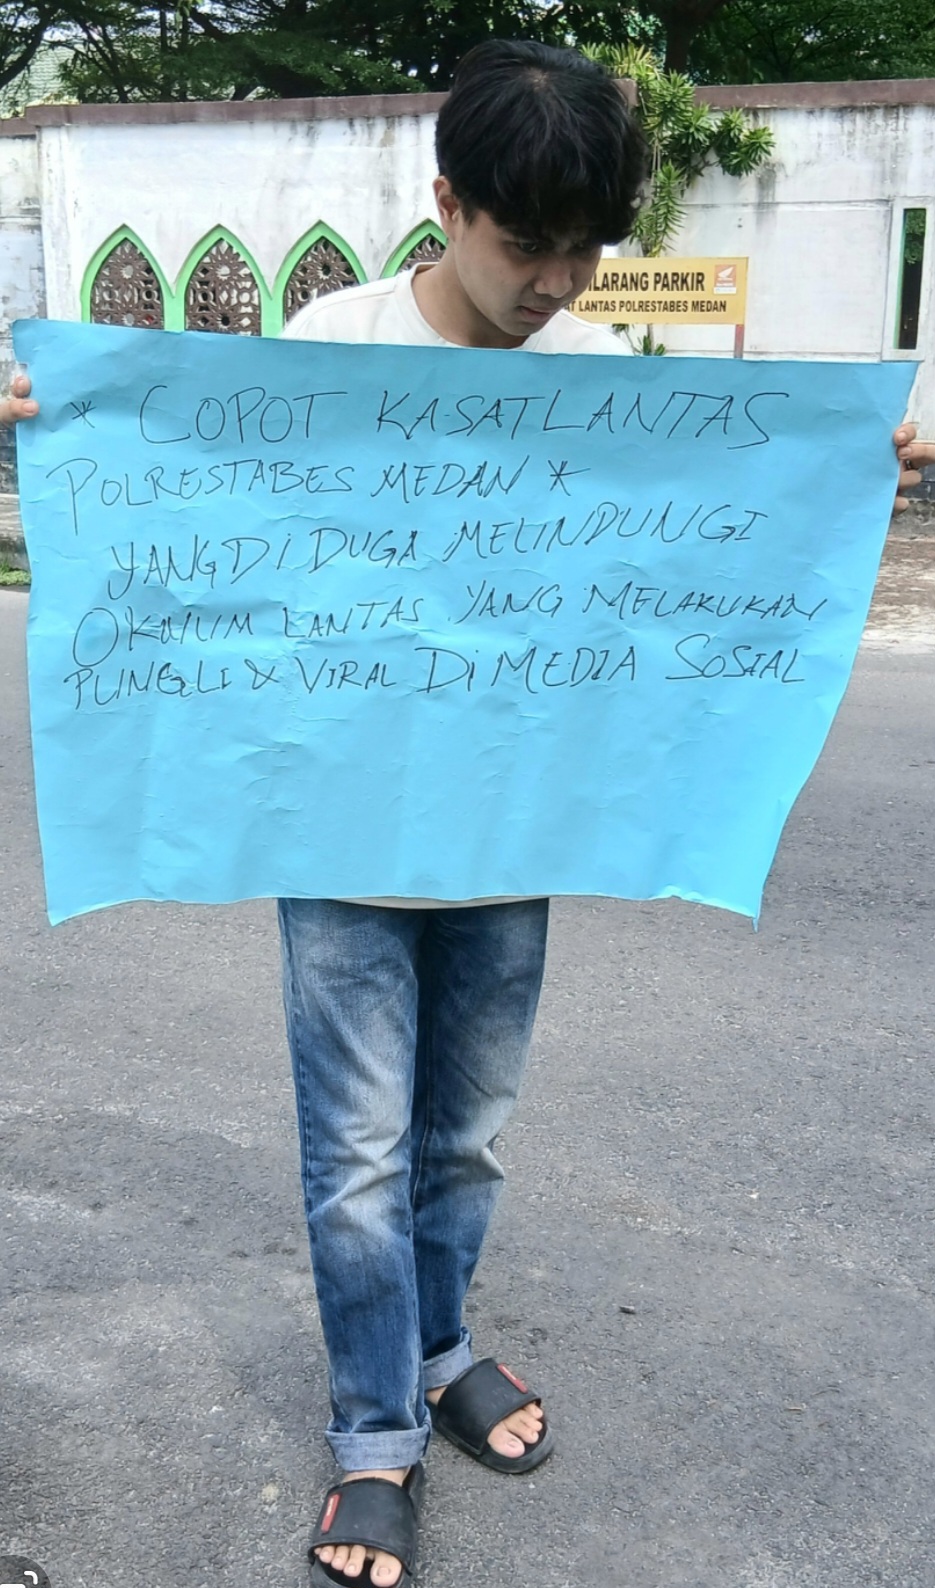 DILARANG PARKIR
AT LANTAS POLRESTABES MEDAN
* COPOT KASATLANTAS
POLRESTABES MEDAN *
YANG DI DUGA MELINDUNGI
OKNUM LANTAS YANG MELAKUKAN
PUNGLI & VIRAL Di MEDIA SOSIAL